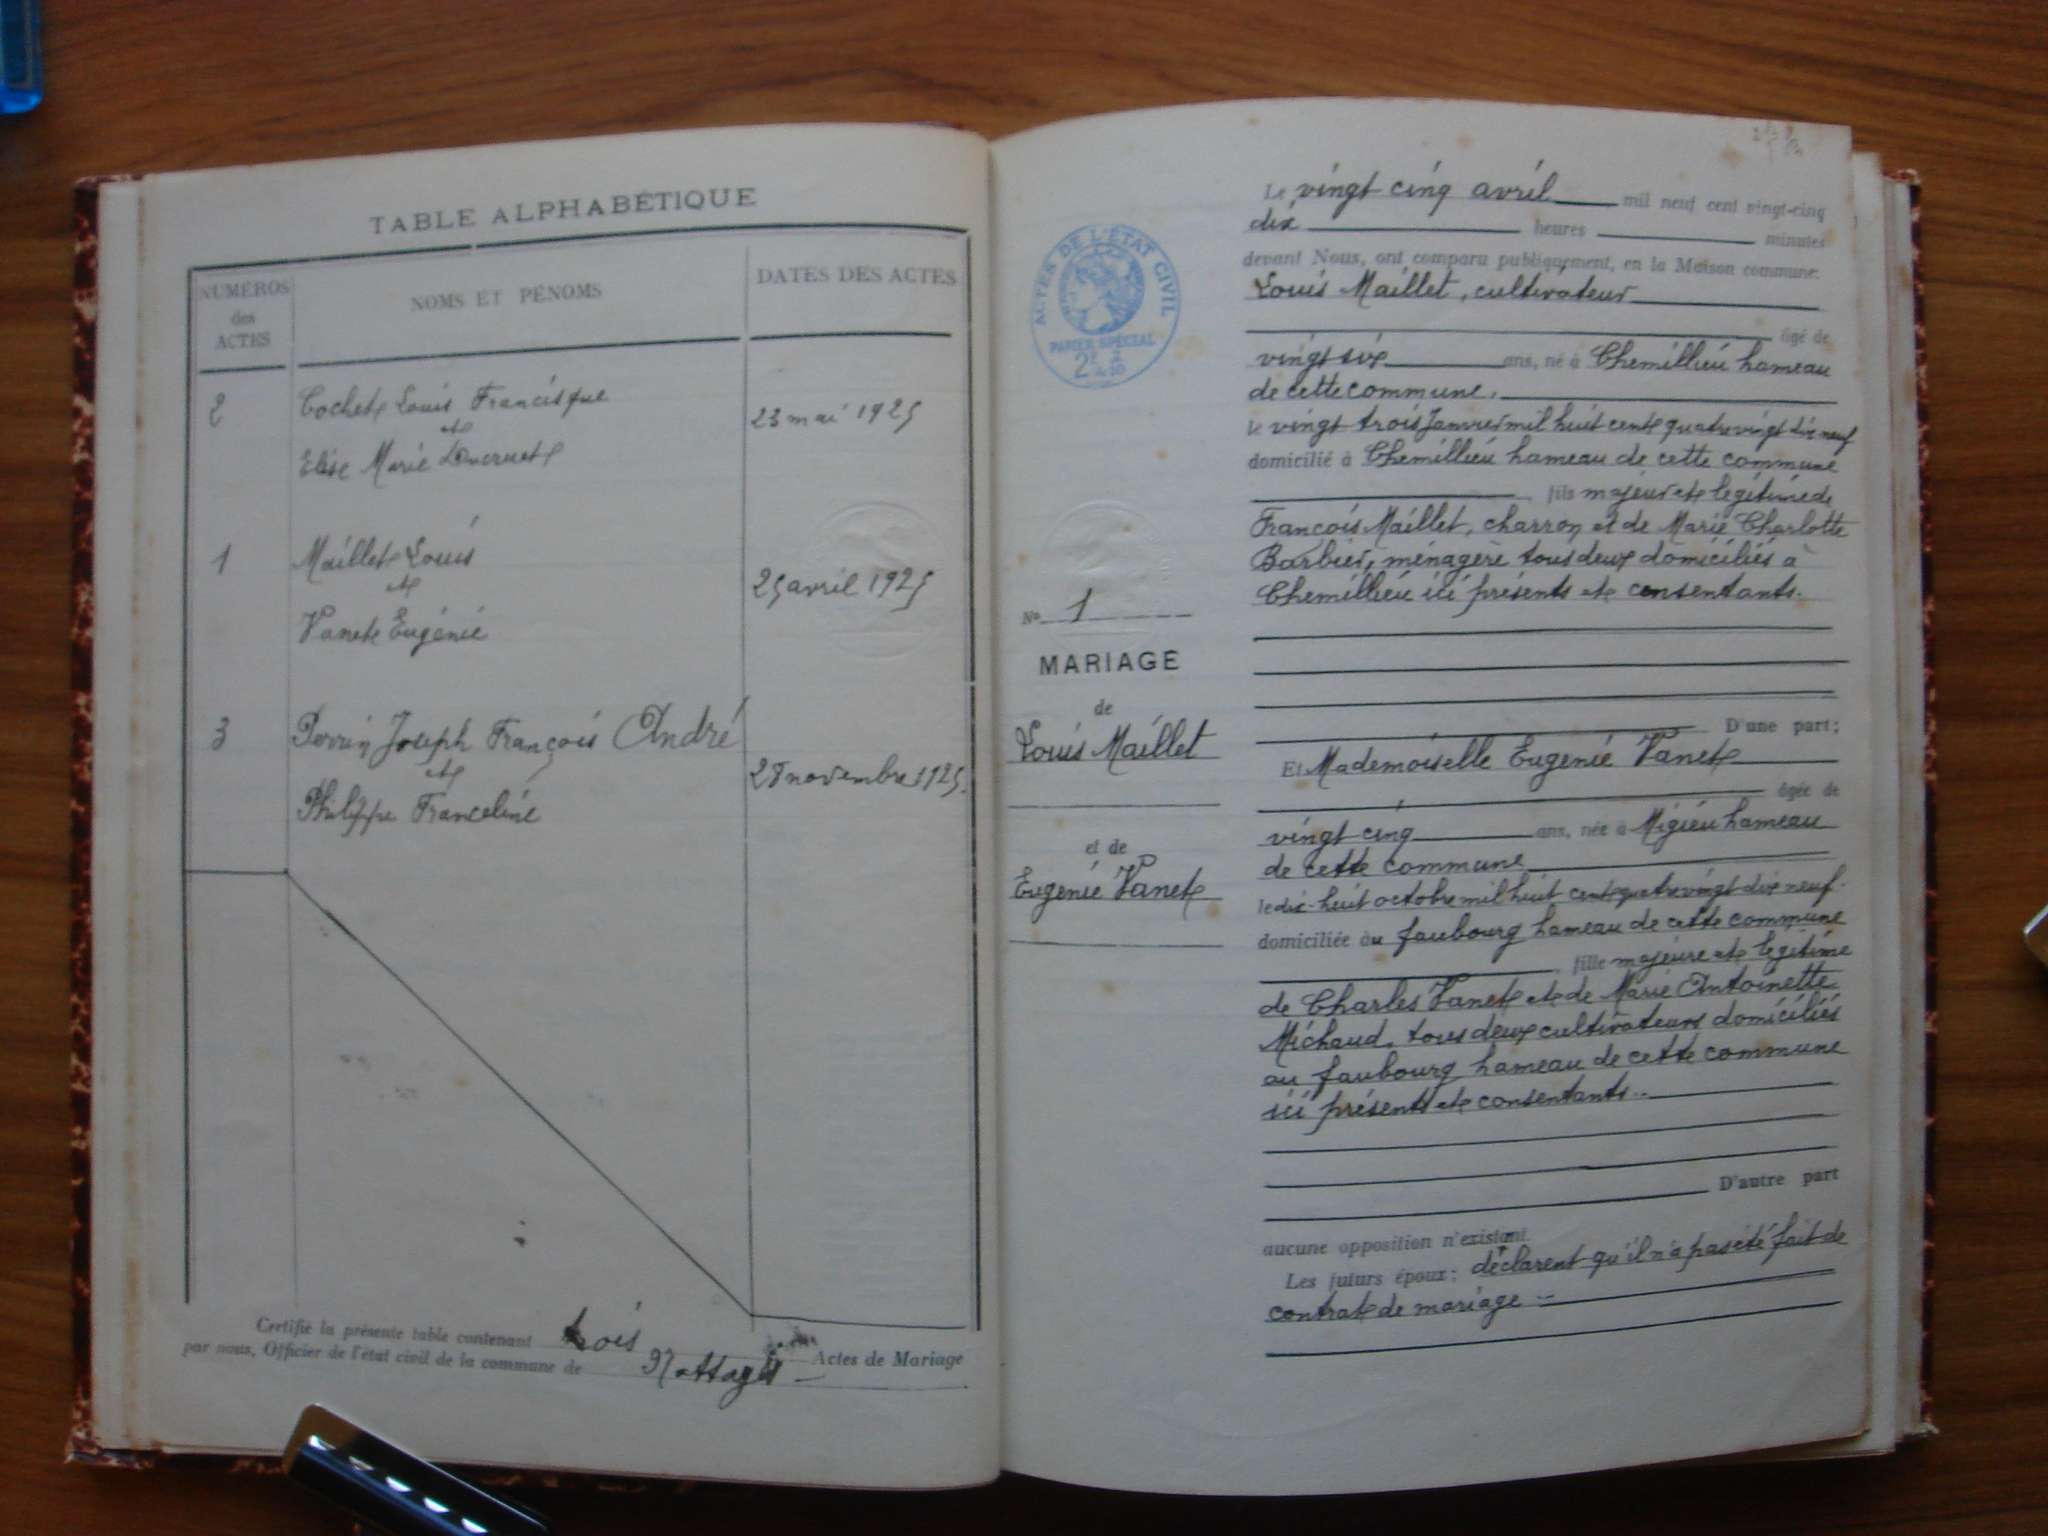 TABLE ALPHABÉTIQUE
NUMÉROS
des
ACTES
NOMS ET PÉNOMS
DATES DES ACTES
2
Cochet Louis Francisque
et
Elise Marie
23 mai 1925
1
Maillet Louis
et
Vanet Eugénie
25 avril 1925
3
Perrin Joseph François André
et
Philippe Franceline
28 novembre 1925.
Certifié la présente table contenant trois Actes de Mariage
par nous, Officier de l'état civil de la commune de Nattages
ACTES DE L'ÉTAT CIVIL
PAPIER SPÉCIAL
No 1
MARIAGE
de
Louis Maillet
et de
Eugenie Vanet
Le vingt cinq avril mil neuf cent vingt-cinq
dix heures minutes
devant Nous, ont comparu publiquement, en la Maison commune:
Louis Maillet, cultivateur
âgé de
vingt six ans, né à Chemillieu hameau
de cette commune,
le vingt trois Janvier mil huit cent quatre vingt dix neuf
domicilié à Chemillieu hameau de cette commune
fils majeur et légitime de
François Maillet, charron et de Marie Charlotte
Barbier, ménagère tous deux domiciliés à
Chemillieu ici présents et consentants.
D'une part;
Et Mademoiselle Eugenie Vanet
âgée de
vingt cinq ans, née à Migieu hameau
de cette commune
le dix-huit octobre mil huit cent quatre vingt dix neuf.
domiciliée au faubourg hameau de cette commune
fille majeure et légitime
de Charles Vanet et de Marie Antoinette
Michaud, tous deux cultivateurs domiciliés
au faubourg hameau de cette commune
ici présents et consentants..
D'autre part
aucune opposition n'existant.
Les futurs époux; déclarent qu'il n'a pas été fait de
contrat de mariage